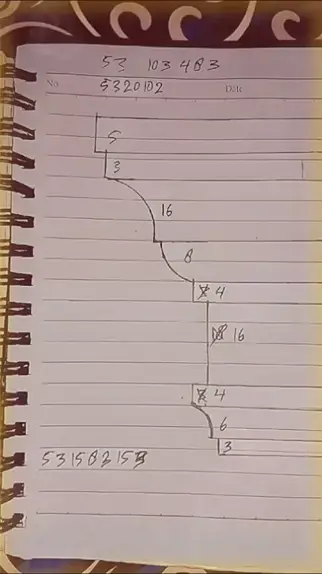 53 103 483
No. 5320102 Date
5
3
16
8
4
16
4
6
3